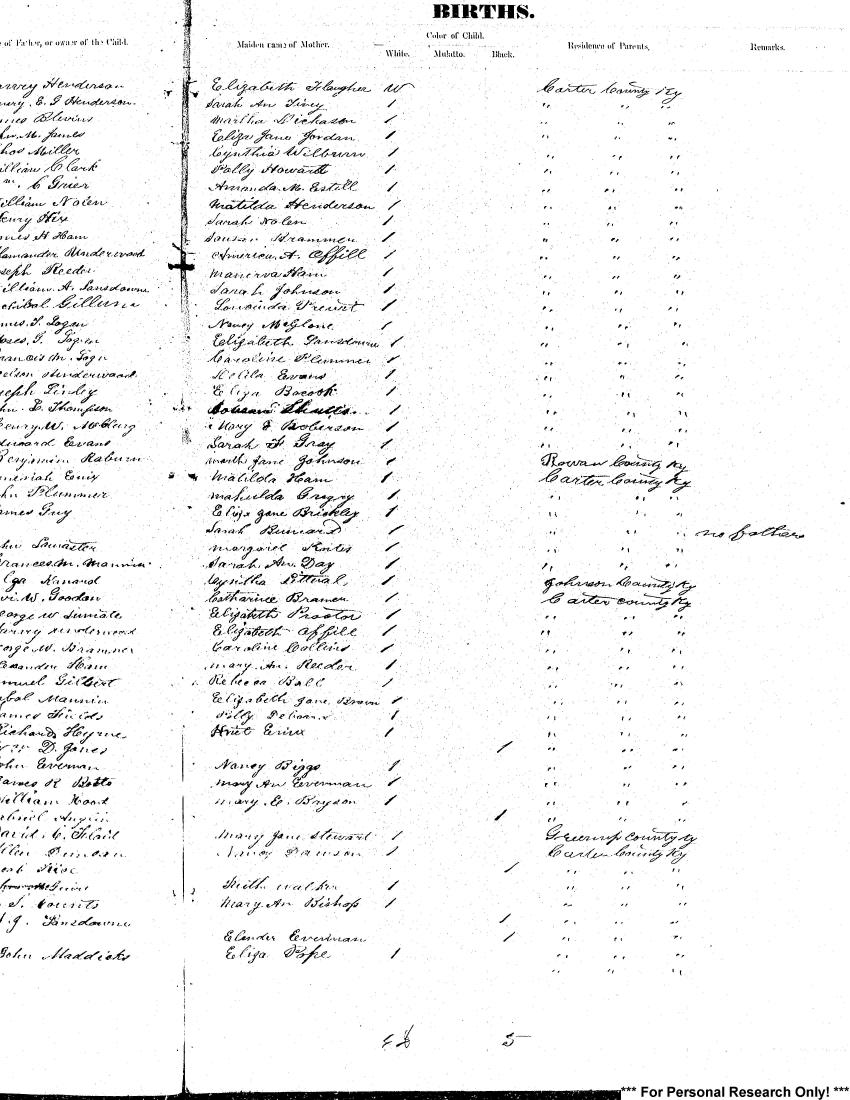 BIRTHS.
of Father, or owner of the Child. Maiden name of Mother. Color of Child. Residence of Parents. Remarks.
White. Mulatto. Black.
arvey Henderson Elizabeth Flaugher W Carter County Ky
E. G Henderson. Sarah An 1 " " "
mes Blevins Martha Dickason 1 " " "
hn. M. James Eliza Jane Jordan 1 " " "
hos Miller Cynthia Wilburn 1 " " "
illiam Clark Polly Howard 1 " " "
m. C Grier Amanda. M. Estill 1 " " "
illiam Nolen Matilda Henderson 1 " " "
enry Hix Sarah Nolen 1 " " "
mes H Ham Brammer 1 " " "
Underwood America. A. Offill 1 " " "
seph Reeder Manerva Ham 1 " " "
illiam. A. Lansdowne Sarah Johnson 1 " " "
chibal 1 " " "
mes. T. Logan Nancy McGlone 1 " " "
oses. G. Logan Elizabeth Lansdowne 1 " " "
rancis M. Logn Caroline Plummer 1 " " "
elson Underwood Evans 1 " " "
seph Tinsley Eliza Bocook 1 " " "
hn. L. Thompson 1 " " "
enry. W. McGlurg Mary F Roberson 1 " " "
dward Evans Sarah F Gray 1 " " "
enjimin Raburn marth Jane Johnson 1 Rowan County Ky
Enix Matilda Ham 1 Carter County Ky
hn Plummer mahulda Gregry 1 " " "
ames Guy Eliza Jane Brickley 1 " " "
Sarah 1 " " " no fathers
hn Lancaster margaret 1 " " "
rances. m. Mannin Sarah An. Day 1 " " "
Kanard Cyntha Litteral, 1 Johnson County Ky
vi. W. Goodan Catharine Bramer 1 Carter county Ky
eorge W Elizabeth Proctor 1 " " "
arvey underwood Elizabeth Offill 1 " " "
orge W. Brammer Caroline Collins 1 " " "
lexander Ham mary. An. Reeder 1 " " "
muel Gilbert Rebecca Ball 1 " " "
Mannin Elizabeth Jane Brown 1 " " "
ames Fields Polly 1 " " "
ichard Hyrne 1 " " "
D. Jones 1 " " "
ohn Everman Nancy Biggs 1 " " "
ames R Botts mary An Everman 1 " " "
illiam Hood mary. E. Bryson 1 " " "
1 " " "
avid. C. Mary Jane Stewart 1 Greenup county Ky
llen Duncan Nancy Dawson 1 Carter County Ky
Rise 1 " " "
walker 1 " " "
S. Counts Mary An Bishop 1 " " "
J. Lansdowne 1 " " "
Elender Everman 1 " " "
John Maddicks Eliza Pope 1 " " "
" " "
5
*** For Personal Research Only! ***